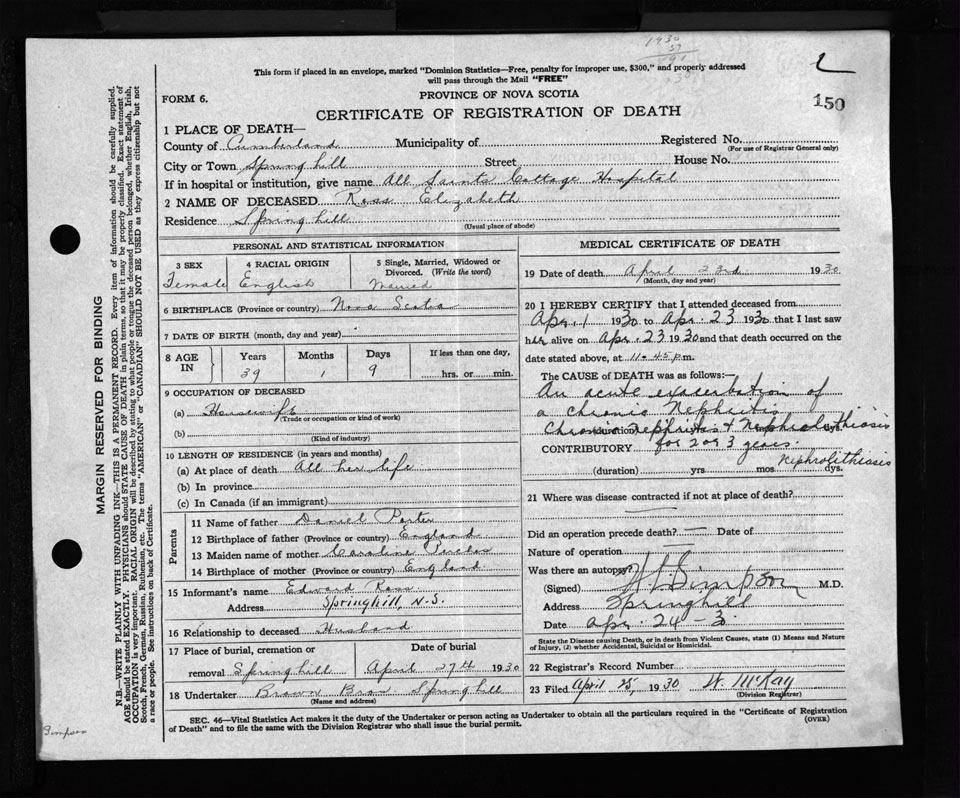 1930
This form if placed in an envelope, marked "Dominion Statistics—Free, penalty for improper use, $300," and properly addressed
will pass through the Mail "FREE"
FORM 6.
PROVINCE OF NOVA SCOTIA
150
CERTIFICATE OF REGISTRATION OF DEATH
1 PLACE OF DEATH—
County of Cumberland Municipality of Registered No.
(For use of Registrar General only)
City or Town Springhill Street House No.
If in hospital or institution, give name All Saints Cottage Hospital
2 NAME OF DECEASED Ross Elizabeth
Residence Springhill
(Usual place of abode)
PERSONAL AND STATISTICAL INFORMATION
3 SEX
Female
4 RACIAL ORIGIN
English
5 Single, Married, Widowed or
Divorced. (Write the word)
Married
6 BIRTHPLACE (Province or country) Nova Scotia
7 DATE OF BIRTH (month, day and year)
8 AGE
IN
Years
39
Months
1
Days
9
If less than one day,
hrs. or min.
9 OCCUPATION OF DECEASED
(a) Housewife
(Trade or occupation or kind of work)
(b)
(Kind of industry)
10 LENGTH OF RESIDENCE (in years and months)
(a) At place of death All her life
(b) In province
(c) In Canada (if an immigrant)
Parents
11 Name of father Daniel Porter
12 Birthplace of father (Province or country) England
13 Maiden name of mother Caroline
14 Birthplace of mother (Province or country) England
15 Informant's name Edward Ross
Address Springhill, N.S.
16 Relationship to deceased Husband
17 Place of burial, cremation or Date of burial
removal Springhill April 27th 1930
18 Undertaker Brown Bros Springhill
(Name and address)
MEDICAL CERTIFICATE OF DEATH
19 Date of death April 23rd 1930
(Month, day and year)
20 I HEREBY CERTIFY that I attended deceased from
Apr. 1 1930 to Apr. 23 1930 that I last saw
her alive on Apr. 23 1930 and that death occurred on the
date stated above, at 11.45 p.m.
The CAUSE of DEATH was as follows:—
An acute exacerbation of
a chronic Nephritis
Chronic nephritis & Nephrolithiasis
(duration)
CONTRIBUTORY for 2 or 3 years.
Nephrolithiasis
(duration) yrs mos dys.
21 Where was disease contracted if not at place of death?
Did an operation precede death? — Date of
Nature of operation —
Was there an autopsy?
(Signed) Simpson M.D.
Address Springhill
Date Apr. 24 - 3
State the Disease causing Death, or in death from Violent Causes, state (1) Means and Nature
of Injury, (2) whether Accidental, Suicidal or Homicidal.
22 Registrar's Record Number
23 Filed April 25, 1930 W. McKay
(Division Registrar)
SEC. 46—Vital Statistics Act makes it the duty of the Undertaker or person acting as Undertaker to obtain all the particulars required in the "Certificate of Registration
of Death" and to file the same with the Division Registrar who shall issue the burial permit. (OVER)
MARGIN RESERVED FOR BINDING
N.B.—WRITE PLAINLY WITH UNFADING INK—THIS IS A PERMANENT RECORD. Every item of information should be carefully supplied.
AGE should be stated EXACTLY. PHYSICIANS should STATE CAUSE OF DEATH in plain terms, so that it may be properly classified. Exact statement of
OCCUPATION is very important. RACIAL ORIGIN will be described by stating to what people or tongue the deceased person belonged, whether English, Irish,
Scotch, French, German, Russian, Ruthenian, etc. The terms "AMERICAN" or "CANADIAN" SHOULD NOT BE USED as they express citizenship but not
a race or people. See instructions on back of Certificate.
Simpson